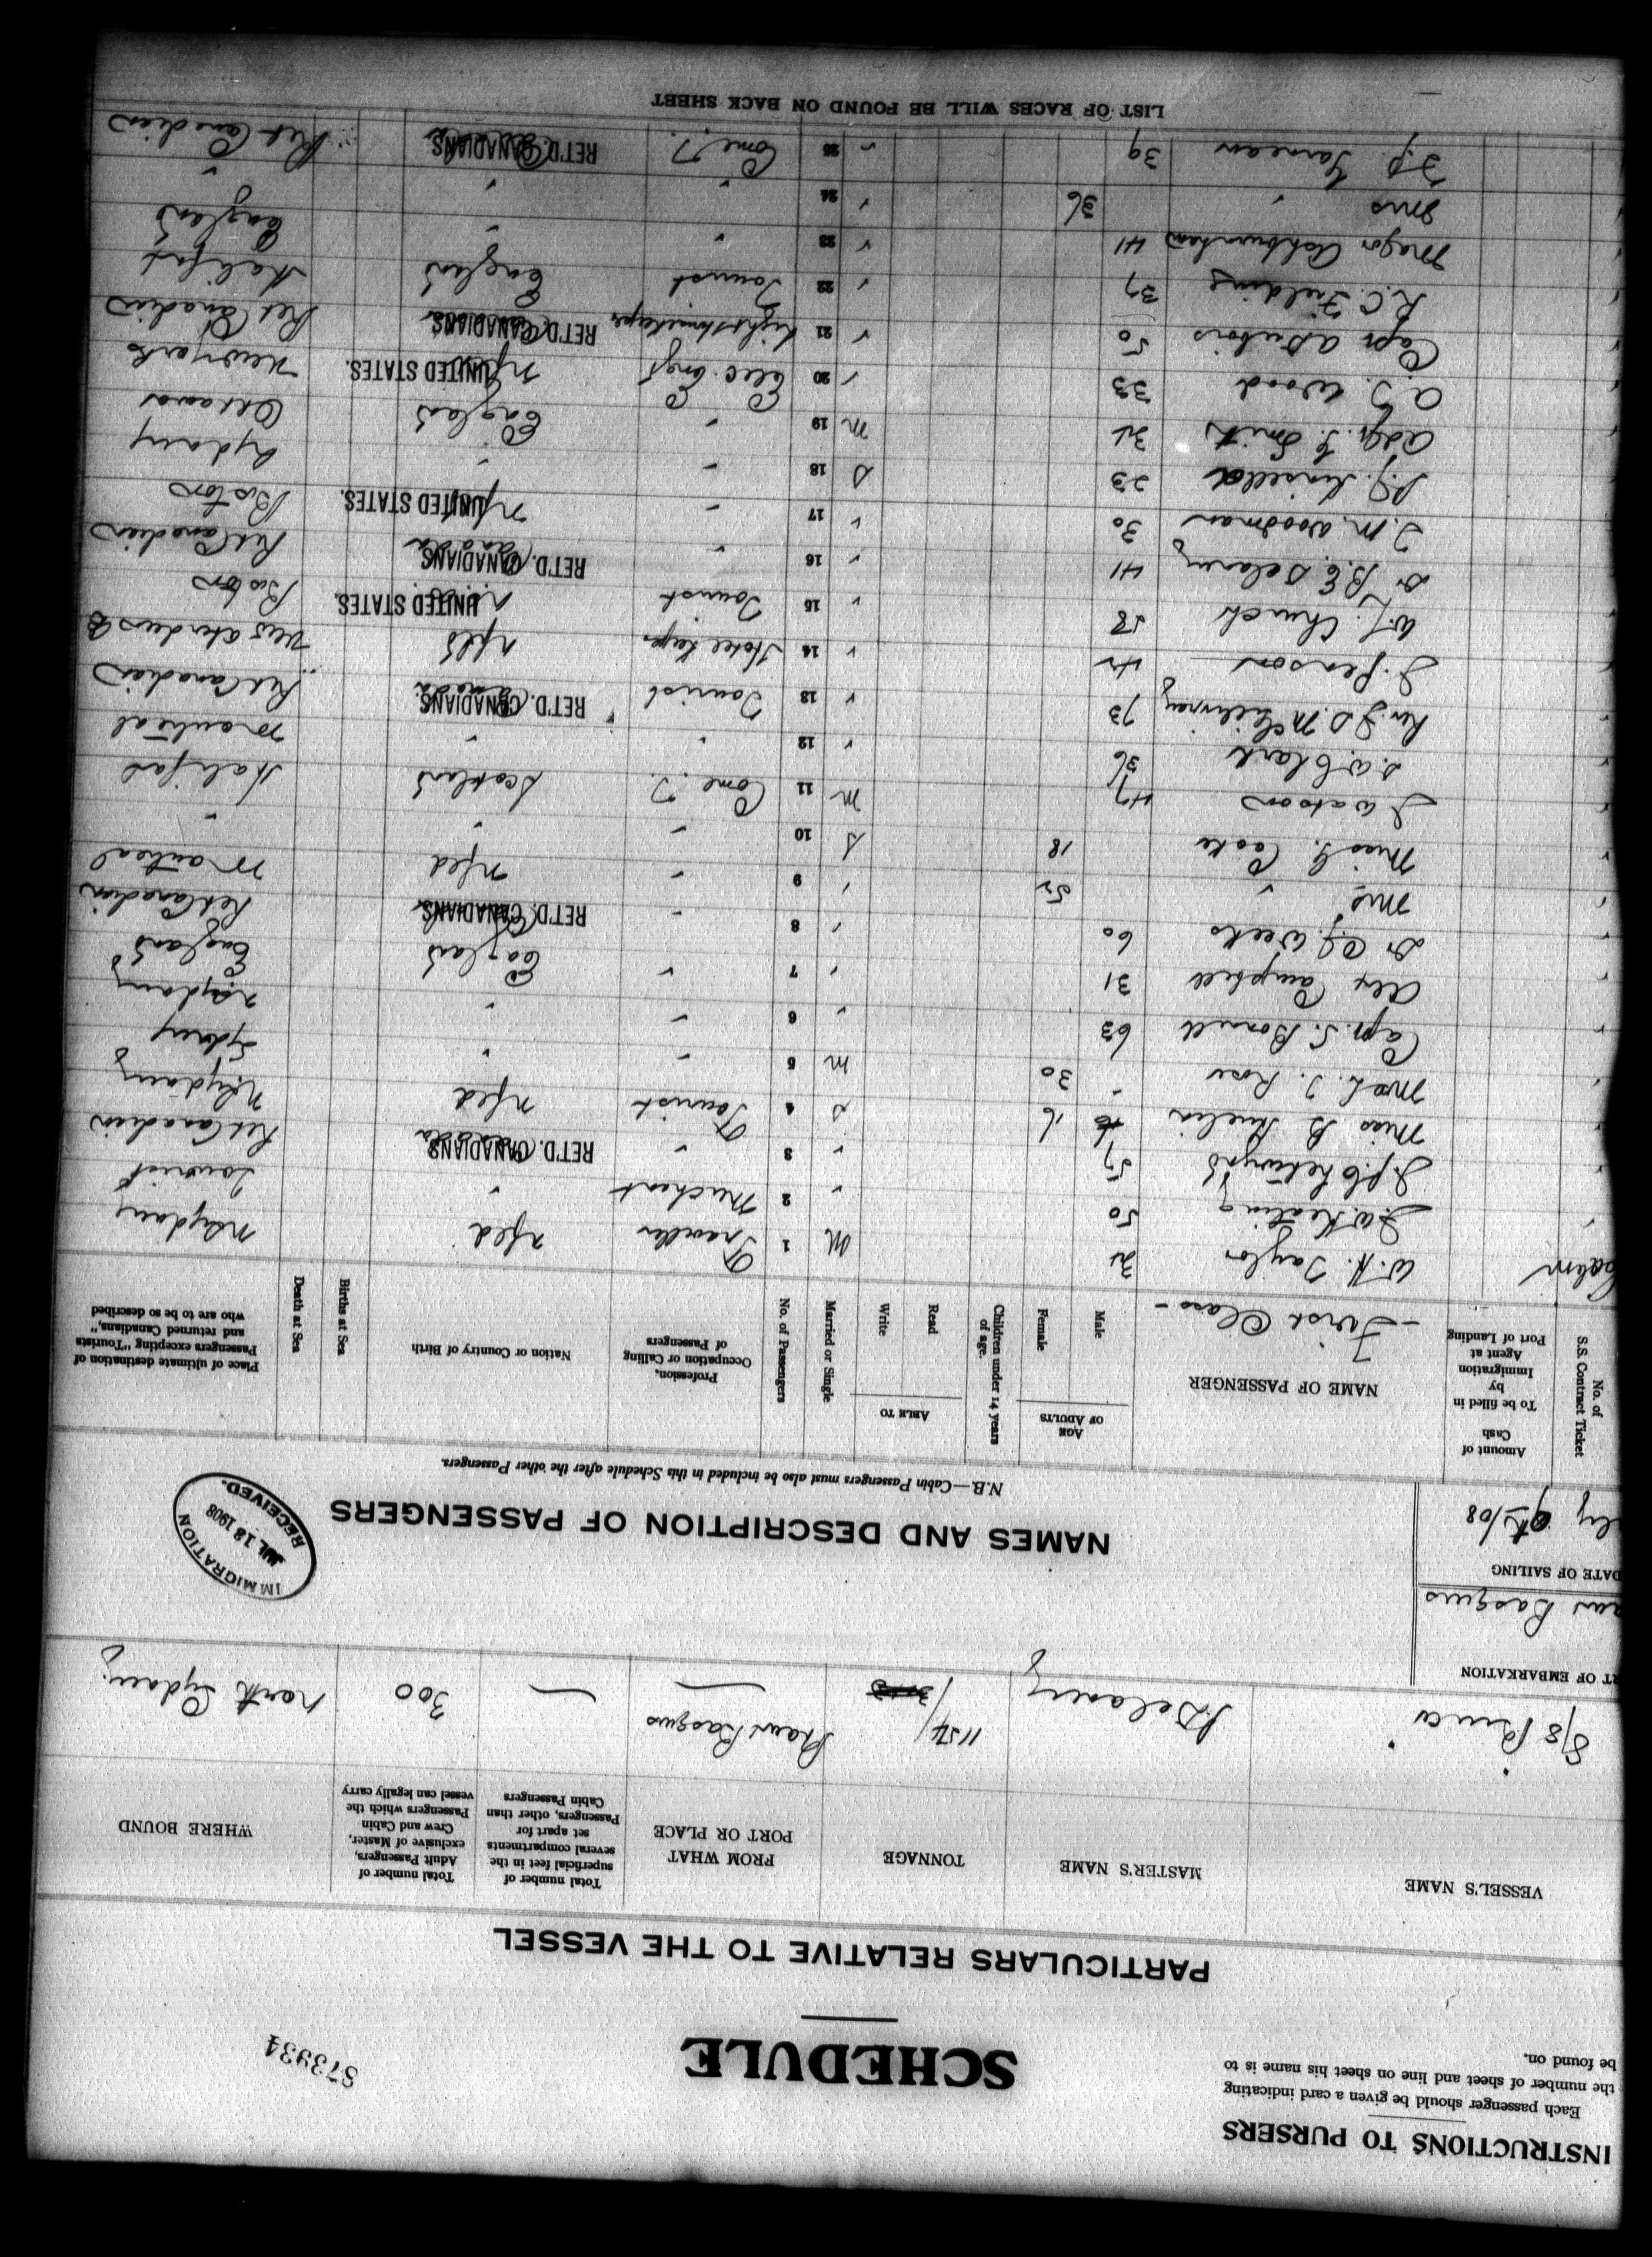 INSTRUCTIONS TO PURSERS
Each passenger should be given a card indicating
the number of sheet and line on sheet his name is to
be found on.
SCHEDULE
373934
PARTICULARS RELATIVE TO THE VESSEL
VESSEL'S NAME
MASTER'S NAME
TONNAGE
FROM WHAT
PORT OR PLACE
Total number of
superficial feet in the
several compartments
set apart for
Passengers, other than
Cabin Passengers
Total number of
Adult Passengers,
exclusive of Master,
Crew and Cabin
Passengers which the
vessel can legally carry
WHERE BOUND
S/S Bruce
Delaney
1154
Basques
300
North Sydney
RT OF EMBARKATION
Basques
DATE OF SAILING
/08
IMMIGRATION
JUL 18 1908
RECEIVED.
NAMES AND DESCRIPTION OF PASSENGERS
N.B.—Cabin Passengers must also be included in this Schedule after the other Passengers.
No. of
S.S. Contract Ticket
Amount of
Cash
To be filled in
by
Immigration
Agent at
Port of Landing
NAME OF PASSENGER
First Class
AGE
OF ADULTS
Male
Female
Children under 14 years
of age.
ABLE TO
Read
Write
Married or Single
No. of Passengers
Profession,
Occupation or Calling
of Passengers
Nation or Country of Birth
Births at Sea
Death at Sea
Place of ultimate destination of
Passengers excepting "Tourists
and returned Canadians,"
who are to be so described
W. H. Taylor M 1 Traveller Nfld N Sydney
Keating 50 " 2 Merchant " Tourist
57 " 3 " RET'D. CANADIANS Ret Canadian
Miss B 16 S 4 Tourist Nfld N Sydney
Mrs L. J. Rose 30 M 5 " " Sydney
Capt. S. Bonnell 63 " 6 " " N Sydney
Alex Campbell 31 " 7 " England England
Dr Weeks 60 " 8 " RET'D. CANADIANS Ret Canadian
Mrs " 52 " 9 " Nfld Montreal
Miss Cooke 18 S 10 " " "
J Watson 47 M 11 Com. T. Scotland Halifax
Clark 36 " 12 " " Montreal
Rev. J. D. McGillivray 73 " 13 Tourist RET'D. CANADIANS Ret Canadian
J. Pearson 42 " 14 Hotel Keeper Nfld
W. J. Church 58 " 15 Tourist UNITED STATES. Boston
Dr B. E. Delaney 41 " 16 " RET'D. CANADIANS Ret Canadian
J. M. Woodman 30 " 17 " UNITED STATES. Boston
Kinsella 23 S 18 " " Sydney
Smith M 19 " England Ottawa
A. J. Wood 33 " 20 Elec. Engr UNITED STATES. New York
Capt A Dubois 50 " 21 Lighthouse keeper RET'D. CANADIANS Ret Canadian
R. C. Fielding 37 " 22 Tourist England Halifax
Major Ashburnham 41 " 23 " " England
Mrs " 36 " 24 " " "
Garneau 39 " 25 Com. T. RET'D. CANADIANS Ret Canadian
LIST OF RACES WILL BE FOUND ON BACK SHEET